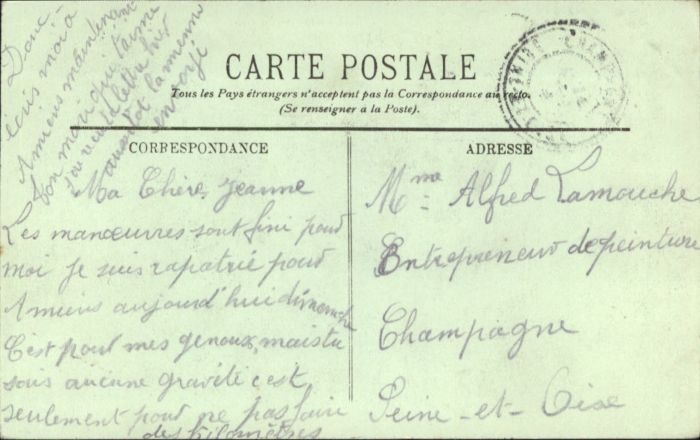 CARTE POSTALE
Tous les Pays étrangers n'acceptent pas la Correspondance au recto.
(Se renseigner à la Poste).
CORRESPONDANCE
Ma Chère Jeanne
Les manœuvres sont fini pour
moi je suis rapatrié pour
Amiens aujourd'hui dimanche
C'est pour mes genoux, mais tu
sais aucune gravité c'est
seulement pour ne pas faire
des kilomètres
Donc
écris moi à
Amiens maintenant
ton mari qui t'aime
j'ai reçu ta lettre hier
aussitôt la mienne
envoyé
ADRESSE
Mme Alfred Lamouche
Entrepreneur de peinture
Champagne
Seine-et-Oise
CHAMPAGNE